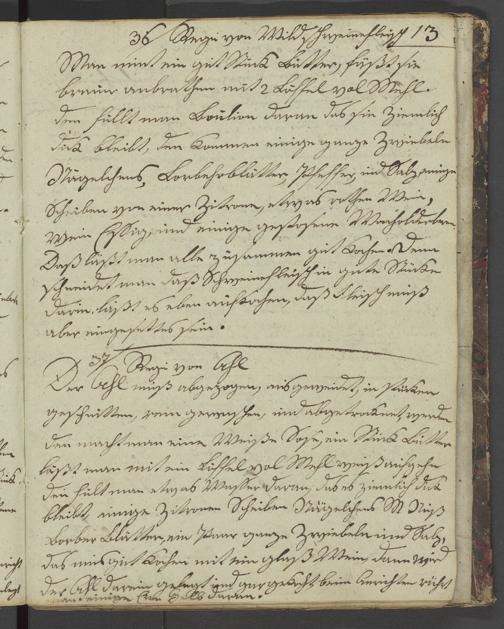 36 Ragu von Wild Schweinefleisch 13
Man nimt ein gut Stück Butter, läßt sie
braun anbrathen mit 2 Löffel vol Mehl.
den füllt man Boulion daran das sie ziemlich
dick bleibt, den kommen einige ganze Zwiebeln
Nägelchens, Lorbehrblätter, Pfeffer, und Salz, einige
Scheiben von einer Zitrone, etwas rothen Wein,
Wein Essig, und einige gestosene Wacholderbern
Daß läßt man alle zusammen gut kochen. Denn
schneidet man daß Schweinefleisch in gute Stücke
darin, läßt es eben aufkochen, daß Fleisch muß
aber eingesalzes sein.
37 Ragu von Ahl
Der Ahl muß abgezogen, ausgeweidet, in Stücken
geschnitten, rein gewaschen, und abgetrocknet werden
den macht man eine Weiße Sose, ein Stück Butter
läßt man mit ein Löffel vol Mehl weiß aufgehn
den fült man etwas Wasser daran, das es ziemlich dick
bleibt einige Zitronen Scheiben Nägelchens M Nuß
Lorber Blätter, ein Paar ganze Zwiebeln und Salz,
das muß gut kochen mit ein Glaß Wein, dann wird
der Ahl darein gelegt und gar gekocht beim Anrichten rührt
man einige daran.